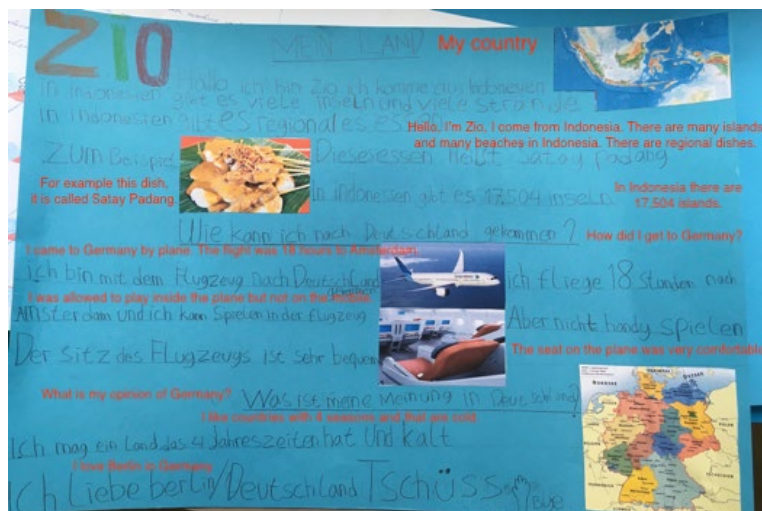 ZIO
MEIN LAND My country
Hallo ich bin Zio ich komme aus Indonesien
In Indonesien gibt es viele inseln und viele strände
In Indonesien gibt es regionales essen
Hello, I'm Zio, I come from Indonesia. There are many islands
and many beaches in Indonesia. There are regional dishes.
Zum Beispiel Diesesessen heißt Satay padang
For example this dish,
it is called Satay Padang.
In indonesien gibt es 17.504 inseln
In Indonesia there are
17,504 islands.
Wie kann ich nach Deutschland gekommen? How did I get to Germany?
I came to Germany by plane. The flight was 18 hours to Amsterdam.
ich bin mit dem Flugzeug nach Deutschland ich fliege 18 Stunden nach
I was allowed to play inside the plane but not on the mobile.
Amsterdam und ich kann Spielen in der flugzeug Aber nicht handy spielen
Der sitz des Flugzeugs ist sehr bequem
The seat on the plane was very comfortable
What is my opinion of Germany? Was ist meine Meinung in Deutschland?
I like countries with 4 seasons and that are cold.
Ich mag ein Land das 4 Jahreszeiten hat Und kalt
I love Berlin in Germany
Ich Liebe berlin/Deutschland Tschüss